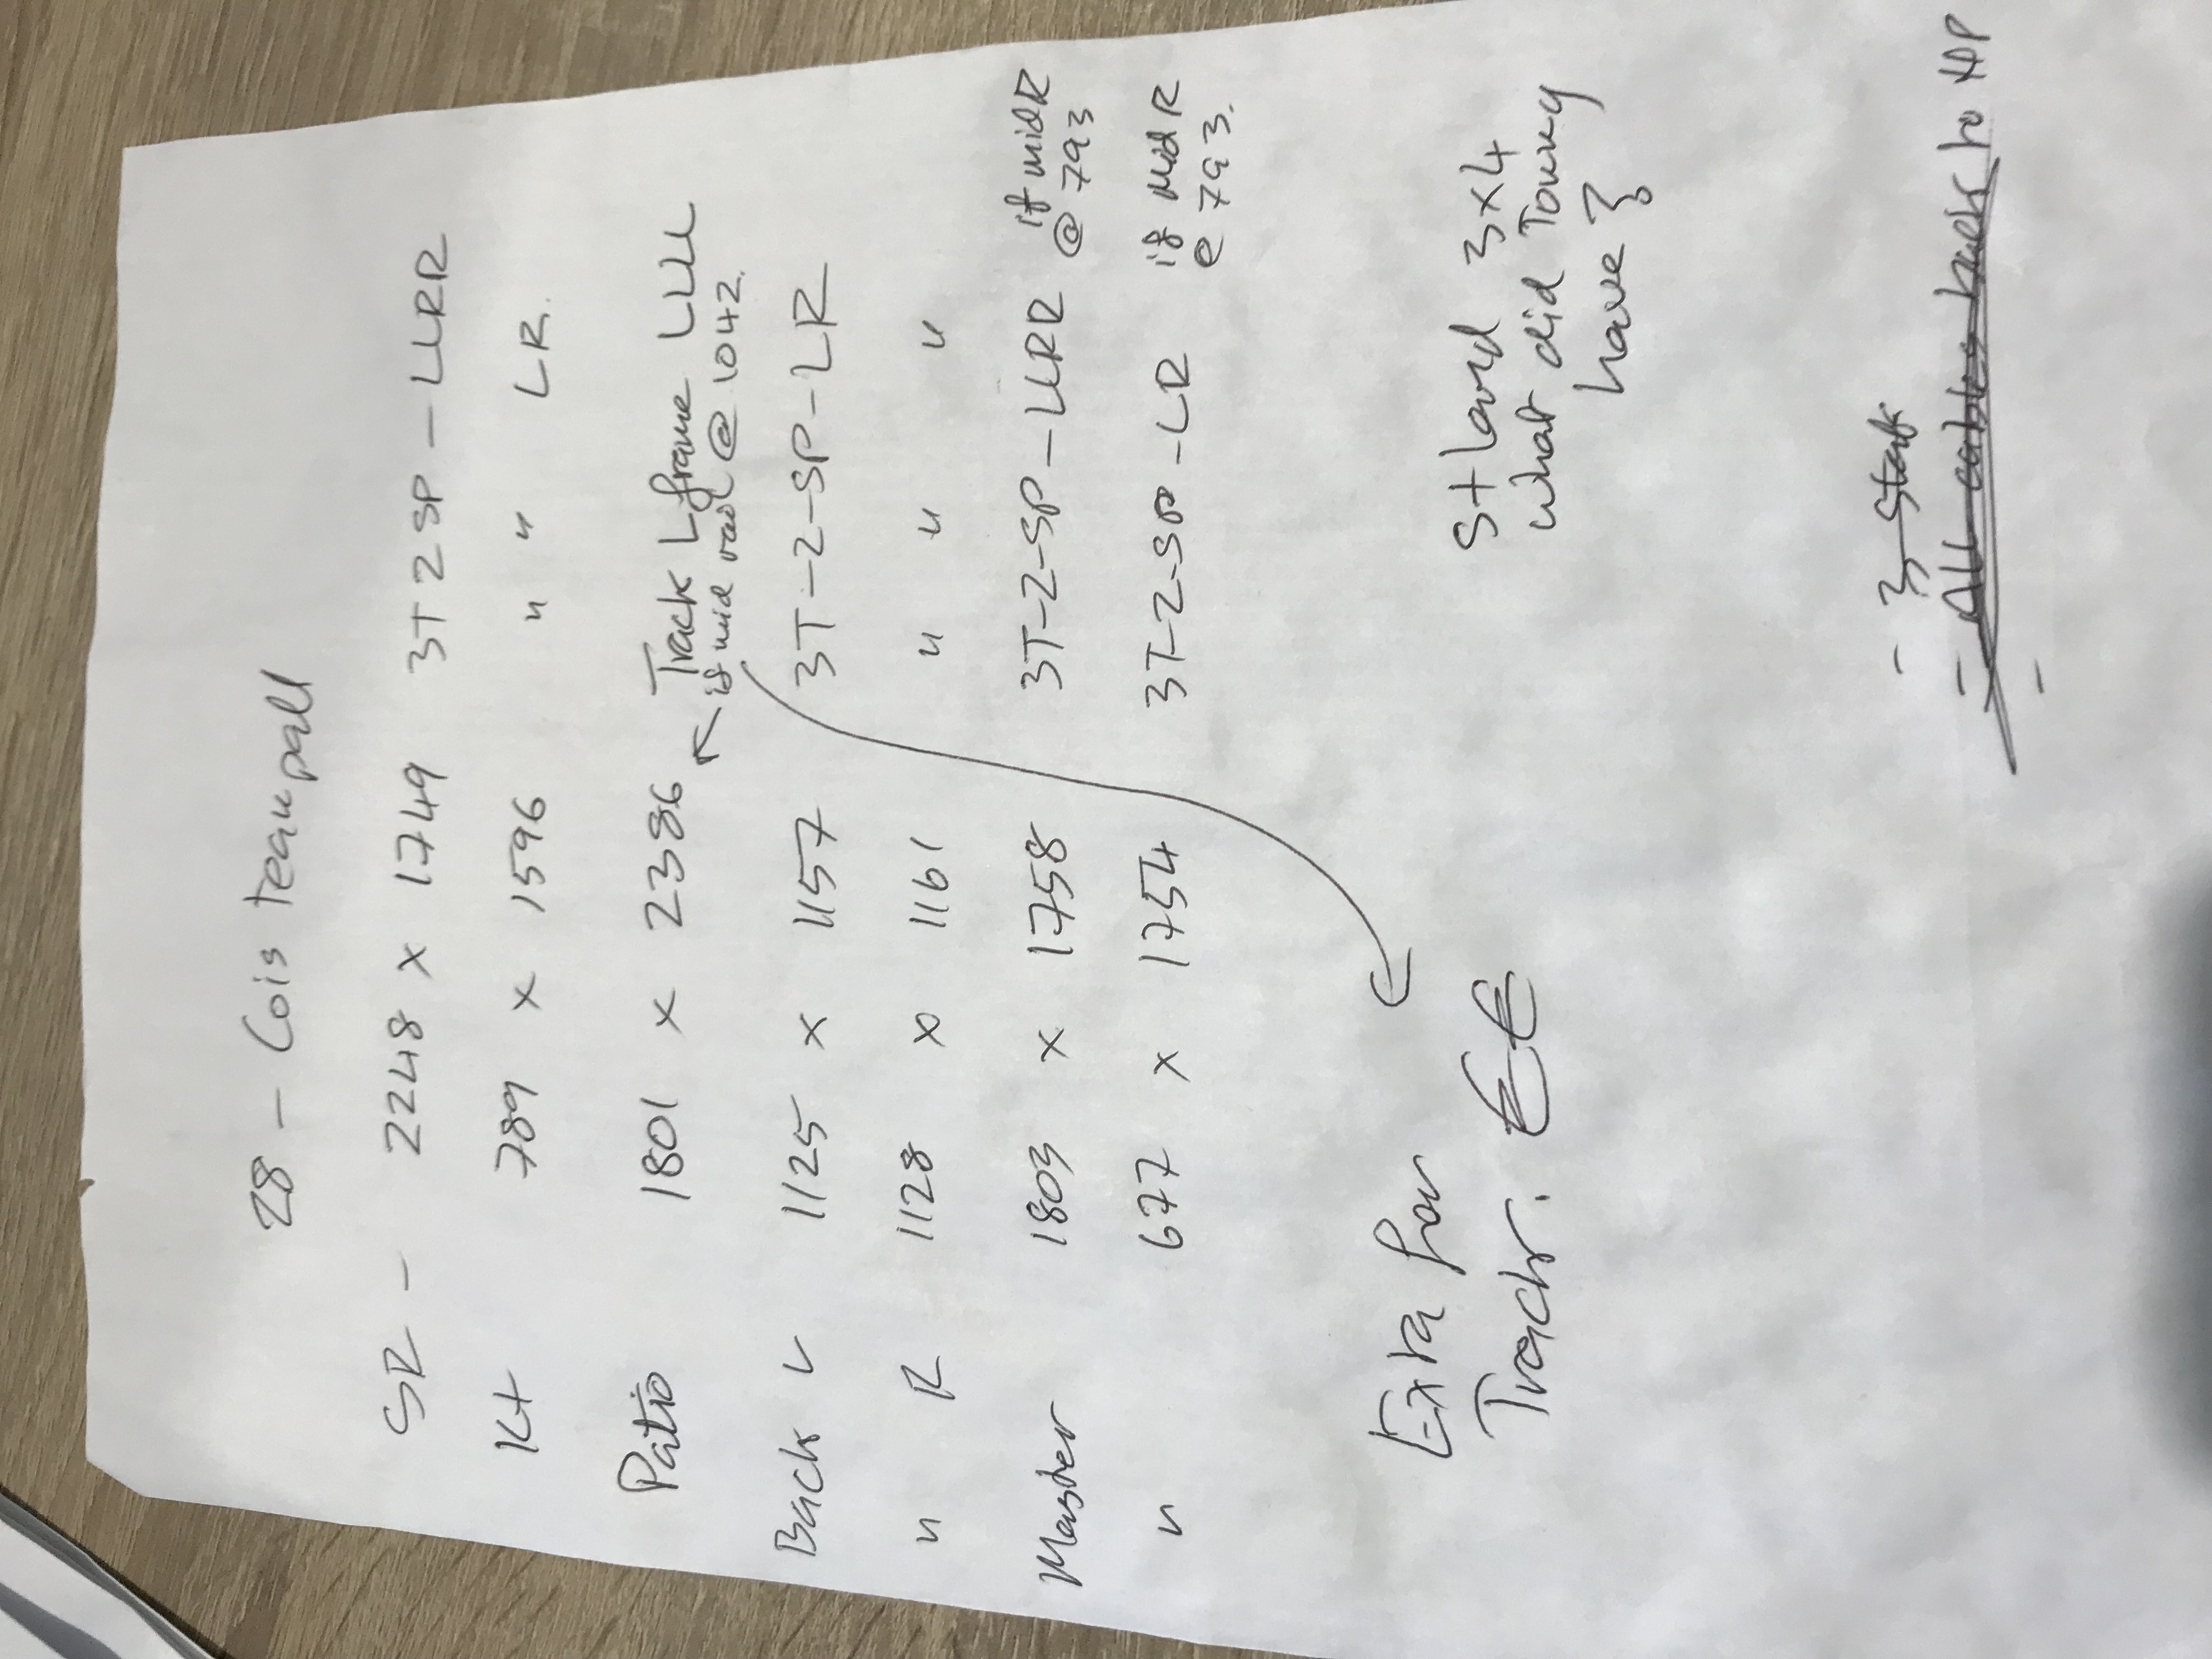 28 - Cois teampall
SR - 2248 x 1749 3T 2 SP - LLRR
Kt 789 x 1596 " " LR.
Patio 1801 x 2386 Track L frame LLLL
if mid rail @ 1042.
Back L 1125 x 1157 3T-2-SP-LR
" R 1128 x 1161 " " "
Master 1803 x 1758 3T-2-SP-LLRR if mid R
@ 793
" 677 x 1754 3T-2-SP-LR if mid R
@ 793.
Extra for
Track. €€
St lard 3x4
what did Tony
have }
- 3
- All cables back to HP
-